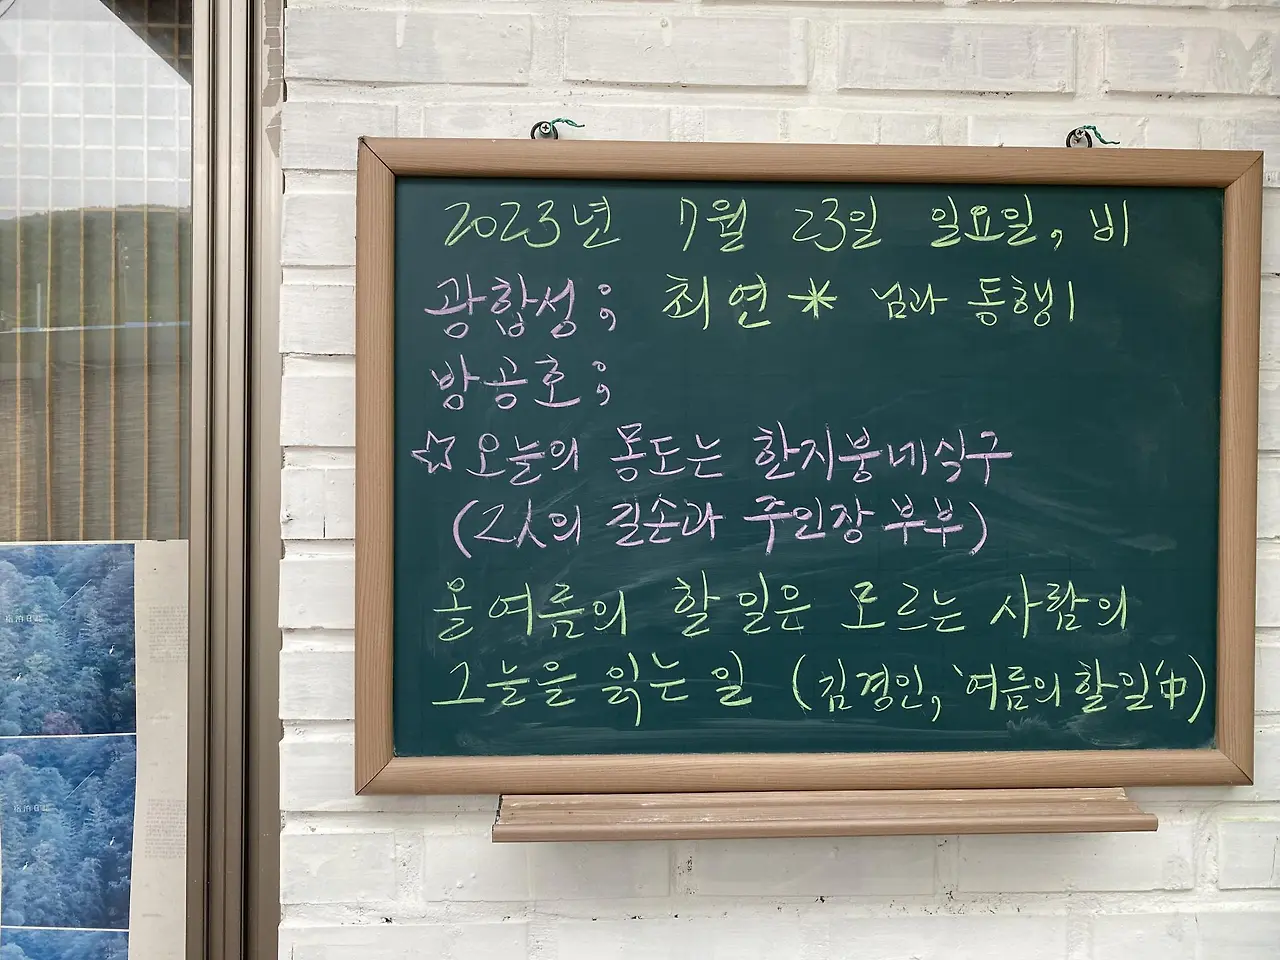 2023년 7월 23일 일요일, 비
광합성; 최연* 님과 동행1
방공호;
☆오늘의 몽도는 한지붕네식구
(2人의 길손과 주인장 부부)
올 여름의 할 일은 모르는 사람의
그늘을 읽는 일 (김경인, '여름의 할일'中)